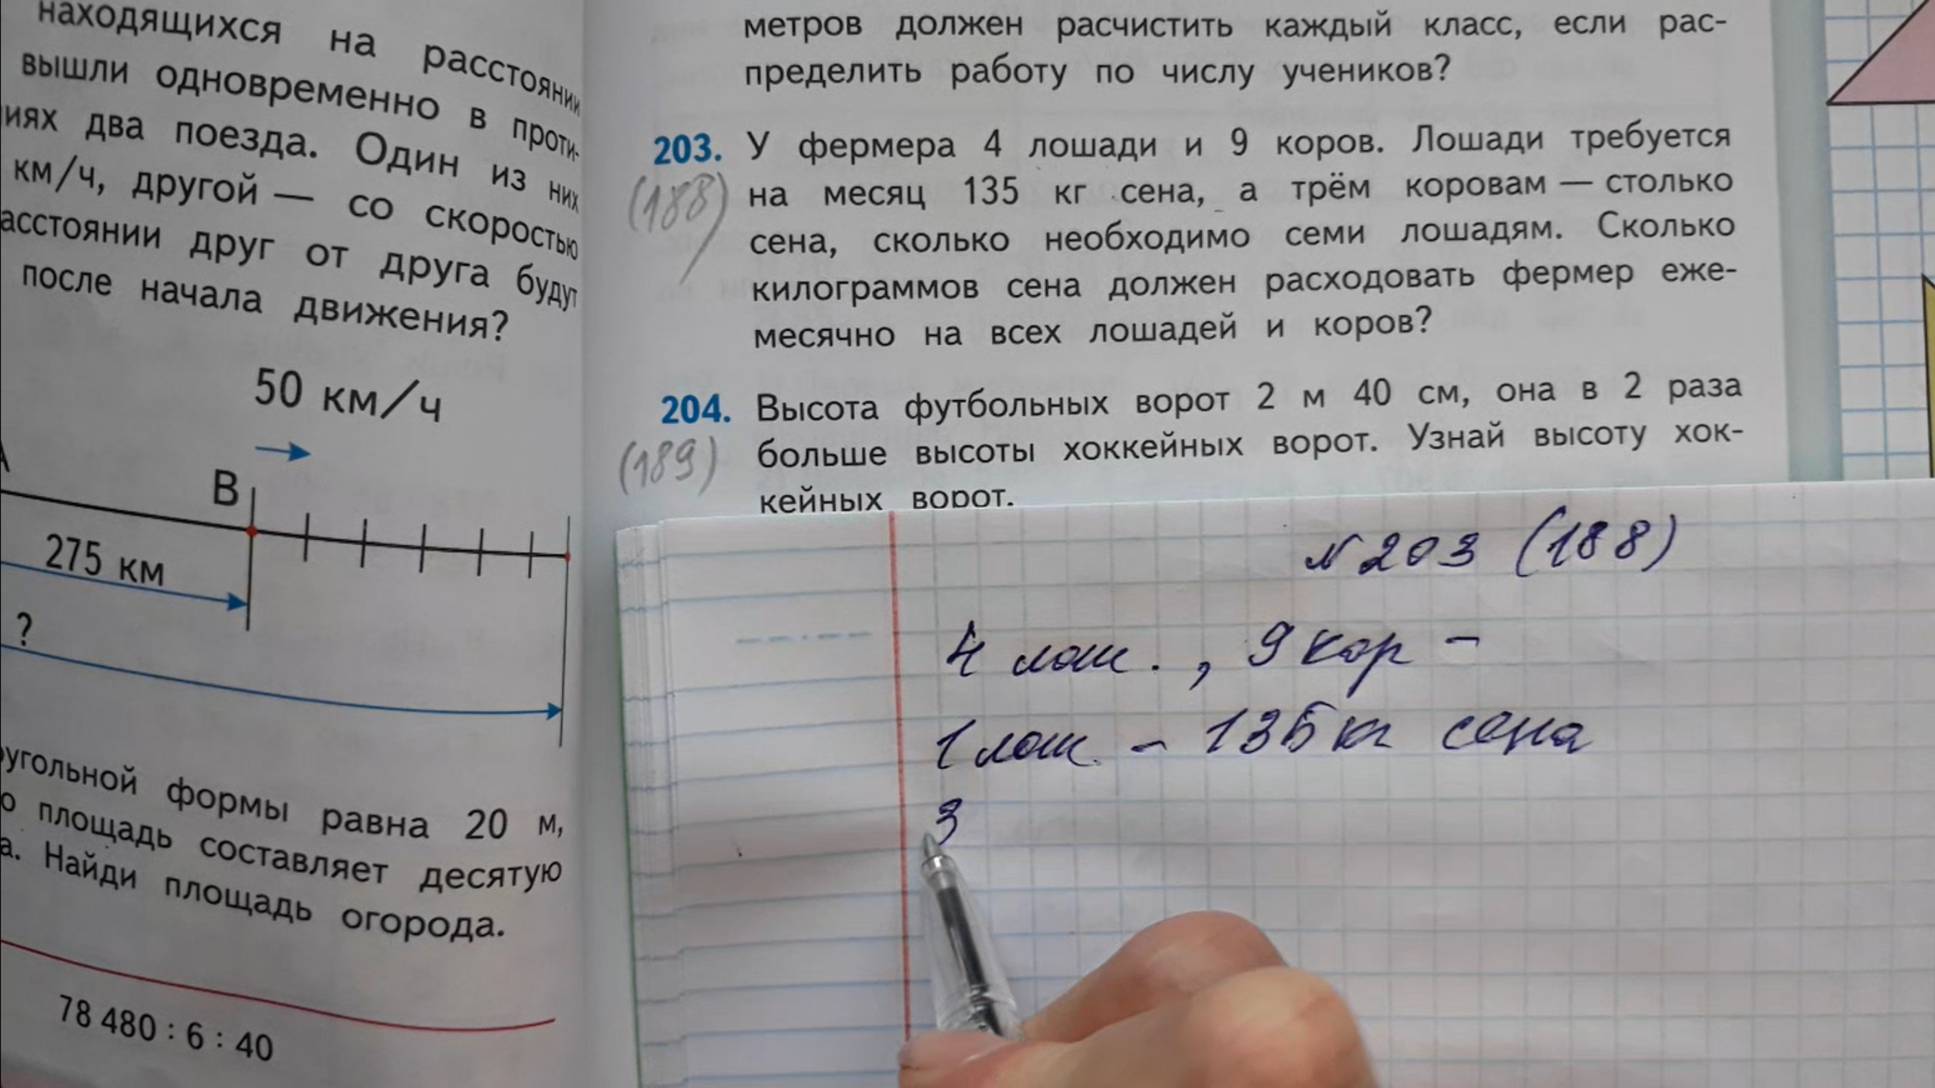 находящихся на расстоянии
вышли одновременно в проти-
иях два поезда. Один из них
км/ч, другой — со скоростью
асстоянии друг от друга будут
после начала движения?
50 км/ч
В
275 км
?
угольной формы равна 20 м,
о площадь составляет десятую
а. Найди площадь огорода.
78 480 : 6 : 40
метров должен расчистить каждый класс, если рас-
пределить работу по числу учеников?
203. У фермера 4 лошади и 9 коров. Лошади требуется
(188) на месяц 135 кг сена, а трём коровам — столько
сена, сколько необходимо семи лошадям. Сколько
килограммов сена должен расходовать фермер еже-
месячно на всех лошадей и коров?
204. Высота футбольных ворот 2 м 40 см, она в 2 раза
(189) больше высоты хоккейных ворот. Узнай высоту хок-
кейных ворот.
№203 (188)
4 лош. , 9 кор -
1 лош. - 135 кг сена
3